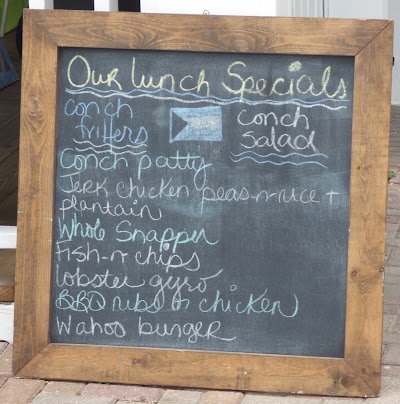 Our lunch Specials
conch fritters
conch Salad
Conch patty
Jerk chicken peas-n-rice +
plantain
Whole Snapper
Fish-n-chips
lobster gyro
BBQ ribs or chicken
Wahoo burger